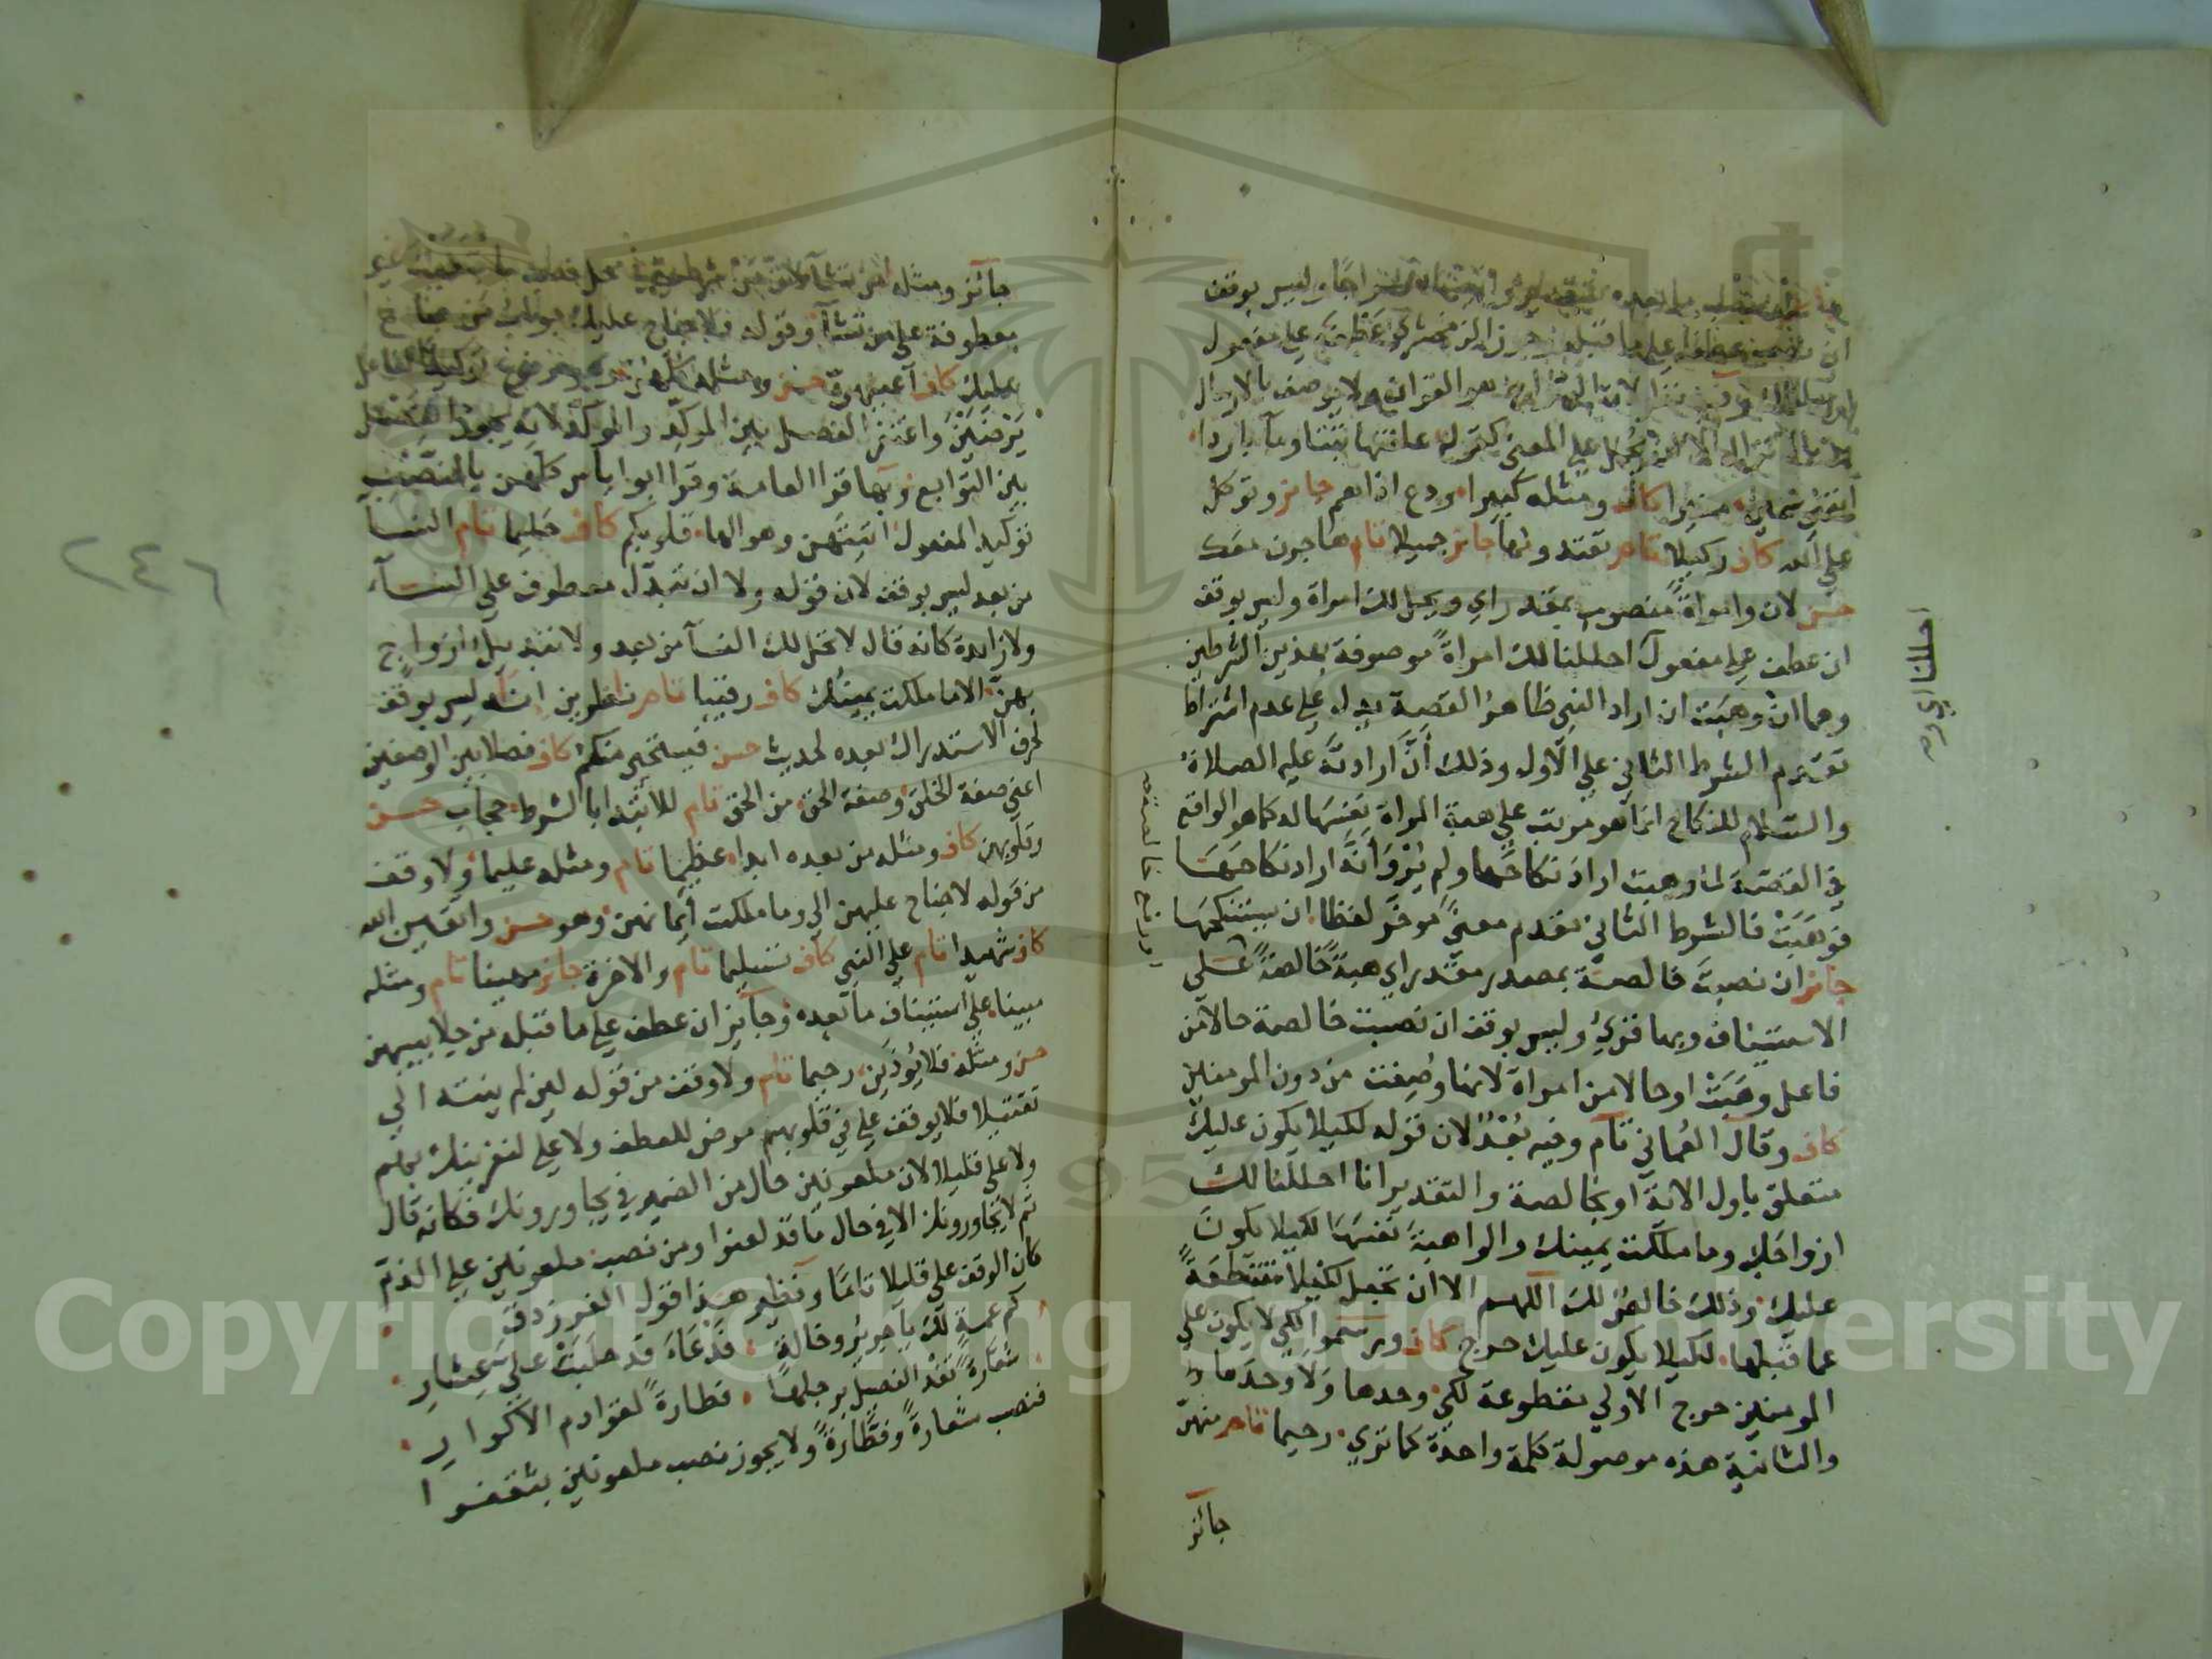 وليس بوقف
ان على ما قبله وجوز الزمخشري عطفه على مفعول
لان هو القران ولا يوصف بالارسال
الا ان يحمل على المعنى كقوله علفتها تبنا وماء باردا
منيرا كاف ومثله كبيرا ودع اذاهم جائز وتوكل
على الله كاف وكيلا تام تعتدونها جائز جميلا تام هاجرن معك
حسن لان وامراة منصوب بمقدر اي ويحل لك امراة وليس بوقف
ان عطف على مفعول احللنا لك امراة موصوفة بهذين الشرطين
وهما ان وهبت ان اراد النبي ظاهر القصة يدل على عدم اشتراط
تقدم الشرط الثاني على الاول وذلك ان ارادته عليه الصلاة
والسلام للنكاح انما هو مرتب على هبة المراة نفسها له كما هو الواقع
في القصة لما وهبت اراد نكاحها ولم يرو انه اراد نكاحها
فوهبت فالشرط الثاني مقدم معنى موخر لفظا ان يستنكحها
جائز ان نصبت خالصة بمصدر مقدر اي هبة خالصة على
الاستيناف وبها قرئ وليس بوقف ان نصبت خالصة حالا من
فاعل وهبت او حالا من امراة لانها وصفت من دون المومنين
كاف وقال العماني تام وفيه بعد لان قوله لكيلا يكون عليك
متعلق باول الاية او بخالصة والتقدير انا احللنا لك
ازواجك وما ملكت يمينك والواهبة نفسها لكيلا يكون
عليك وذلك خالص لك اللهم الا ان تجعل لكيلا منقطعة
عما قبلها لكيلا يكون عليك حرج كاف ورسموا لكي لا يكون على
المومنين حرج الاولى مقطوعة لكي وحدها ولا وحدها
والثانية هذه موصولة كلمة واحدة كما ترى رحيما تام منهن
جائز
احللنا اي ومه
جائز ومثله من تشاء
معطوفة على من تشاء وقوله فلا جناح عليك جواب من
عليك كاف اعينهن حسن ومثله كلهن توكيد لفاعل
يرضين واغتفر الفصل بين الموكد والموكد لانه يجوز الفصل
بين التوابع وبها قرا العامة وقرا ابو اياس كلهن بالنصب
توكيد المفعول اتيتهن وهو الهاء قلوبكم كاف حليما تام النسا
من بعد ليس بوقف لان قوله ولا ان تبدل معطوف على النساء
ولا زايدة كانه قال لا تحل لك النساء من بعد ولا تبديل ازواج
بهن الا ما ملكت يمينك كاف رقيبا تام ناظرين اناه ليس بوقف
لحرف الاستدراك بعده لحديث حسن فيستحي منكم كاف فصلا بين الوصفين
اعني صفة الخلق وصفة الحق من الحق تام للابتدا بالشرط حجاب حسن
وقلوبهن كاف ومثله من بعده ابدا عظيما تام ومثله عليما ولا وقف
من قوله لا جناح عليهن الى وما ملكت ايمانهن وهو حسن واتقين الله
كاف شهيدا تام على النبي كاف تسليما تام والاخرة جائز مهينا تام ومثله
مبينا على استيناف ما بعده وجائز ان عطف على ما قبله من جلابيبهن
حسن ومثله فلا يوذين رحيما تام ولا وقف من قوله لئن لم ينته الى
تقتيلا فلا يوقف على في قلوبهم مرض للعطف ولا على لنغرينك بهم
ولا على قليلا لان ملعونين حال من الضمير في يجاورونك فكانه قال
ثم لا يجاورونك الا في حال ما قد لعنوا ومن نصب ملعونين على الذم
كان الوقف على قليلا تاما ونظير هذا قول الفرزدق
كم عمة لك يا جرير وخالة فدعاء قد حلبت علي عشاري
شغارة تقذ الفصيل برجلها فطارة لقوادم الاكوار
فنصب شغارة وفطارة ولا يجوز نصب ملعونين بثقفوا
٢٤٦
Copyright © King Saud University
1957